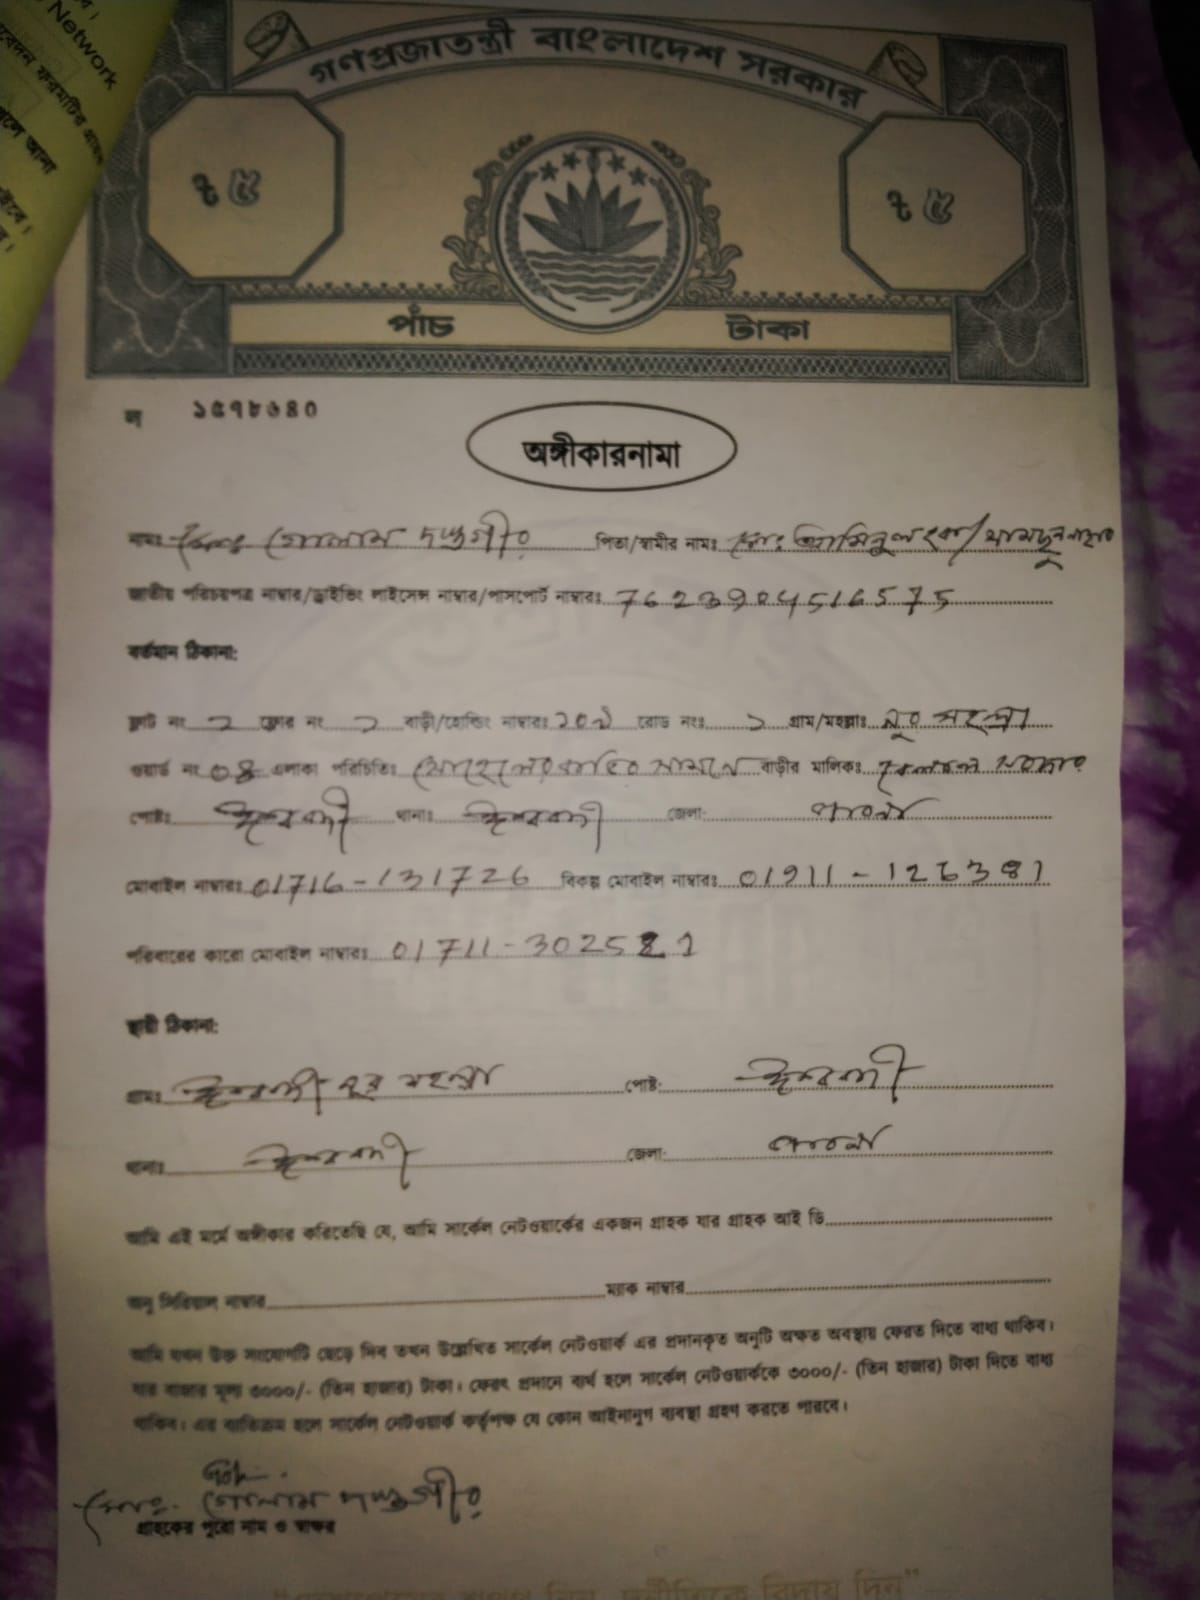 Network
গণপ্রজাতন্ত্রী বাংলাদেশ সরকার
৳ ৫ ৳ ৫
পাঁচ টাকা
ল ১৫৭৮৬৪০
অঙ্গীকারনামা
নামঃ মোঃ গোলাম দস্তগীর পিতা/স্বামীর নামঃ মোঃ আমিনুল হক/
জাতীয় পরিচয়পত্র নাম্বার/ড্রাইভিং লাইসেন্স নাম্বার/পাসপোর্ট নাম্বারঃ 7623904516575
বর্তমান ঠিকানা:
ফ্লাট নং ২ ফ্লোর নং ১ বাড়ী/হোল্ডিং নাম্বারঃ রোড নংঃ ১ গ্রাম/মহল্লাঃ নূর মহল্লা
ওয়ার্ড নং 04 এলাকা পরিচিতিঃ সামনে বাড়ীর মালিকঃ
পোষ্টঃ ঈশ্বরদী থানাঃ ঈশ্বরদী জেলা: পাবনা
মোবাইল নাম্বারঃ 01716-131726 বিকল্প মোবাইল নাম্বারঃ 01911-126381
পরিবারের কারো মোবাইল নাম্বারঃ 01711-302521
স্থায়ী ঠিকানা:
গ্রামঃ ঈশ্বরদী নূর মহল্লা পোষ্ট: ঈশ্বরদী
থানাঃ ঈশ্বরদী জেলা: পাবনা
আমি এই মর্মে অঙ্গীকার করিতেছি যে, আমি সার্কেল নেটওয়ার্কের একজন গ্রাহক যার গ্রাহক আই ডি
অনু সিরিয়াল নাম্বার ম্যাক নাম্বার
আমি যখন উক্ত সংযোগটি ছেড়ে দিব তখন উল্লেখিত সার্কেল নেটওয়ার্ক এর প্রদানকৃত অনুটি অক্ষত অবস্থায় ফেরত দিতে বাধ্য থাকিব।
যার বাজার মূল্য ৩০০০/- (তিন হাজার) টাকা। ফেরৎ প্রদানে ব্যর্থ হলে সার্কেল নেটওয়ার্ককে ৩০০০/- (তিন হাজার) টাকা দিতে বাধ্য
থাকিব। এর ব্যতিক্রম হলে সার্কেল নেটওয়ার্ক কর্তৃপক্ষ যে কোন আইনানুগ ব্যবস্থা গ্রহণ করতে পারবে।
মোঃ গোলাম দস্তগীর
গ্রাহকের পুরো নাম ও স্বাক্ষর
দুর্নীতিকে বিদায় দিন"